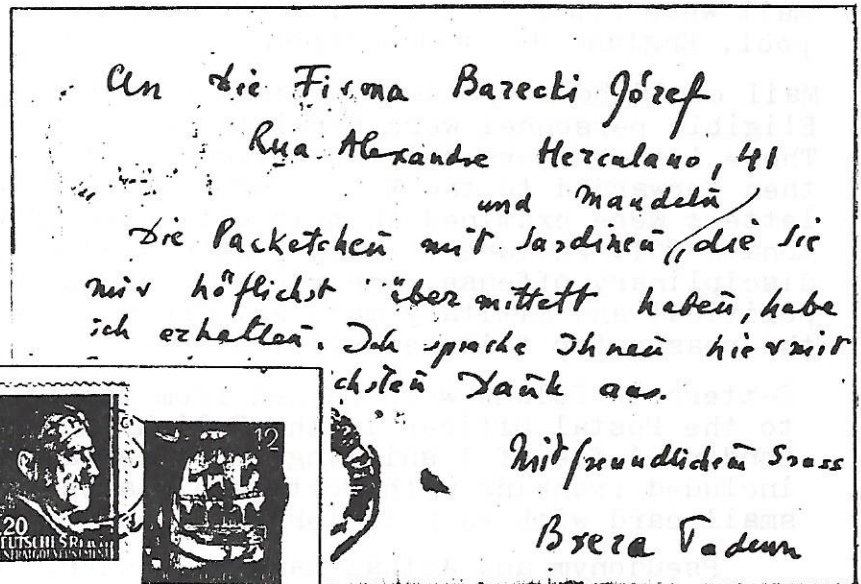 An die Firma Barecki Józef
Rua Alexandre Herculano, 41
und Mandeln
Die Packetchen mit Sardinen, die Sie
mir höflichst übermittelt haben, habe
ich erhalten. Ich spreche Ihnen hiermit
chsten Dank aus.
Mit freundlichem Gruss
Brzza Tadeusz
20
DEUTSCHES REICH
GENERALGOUVERNEMENT
12